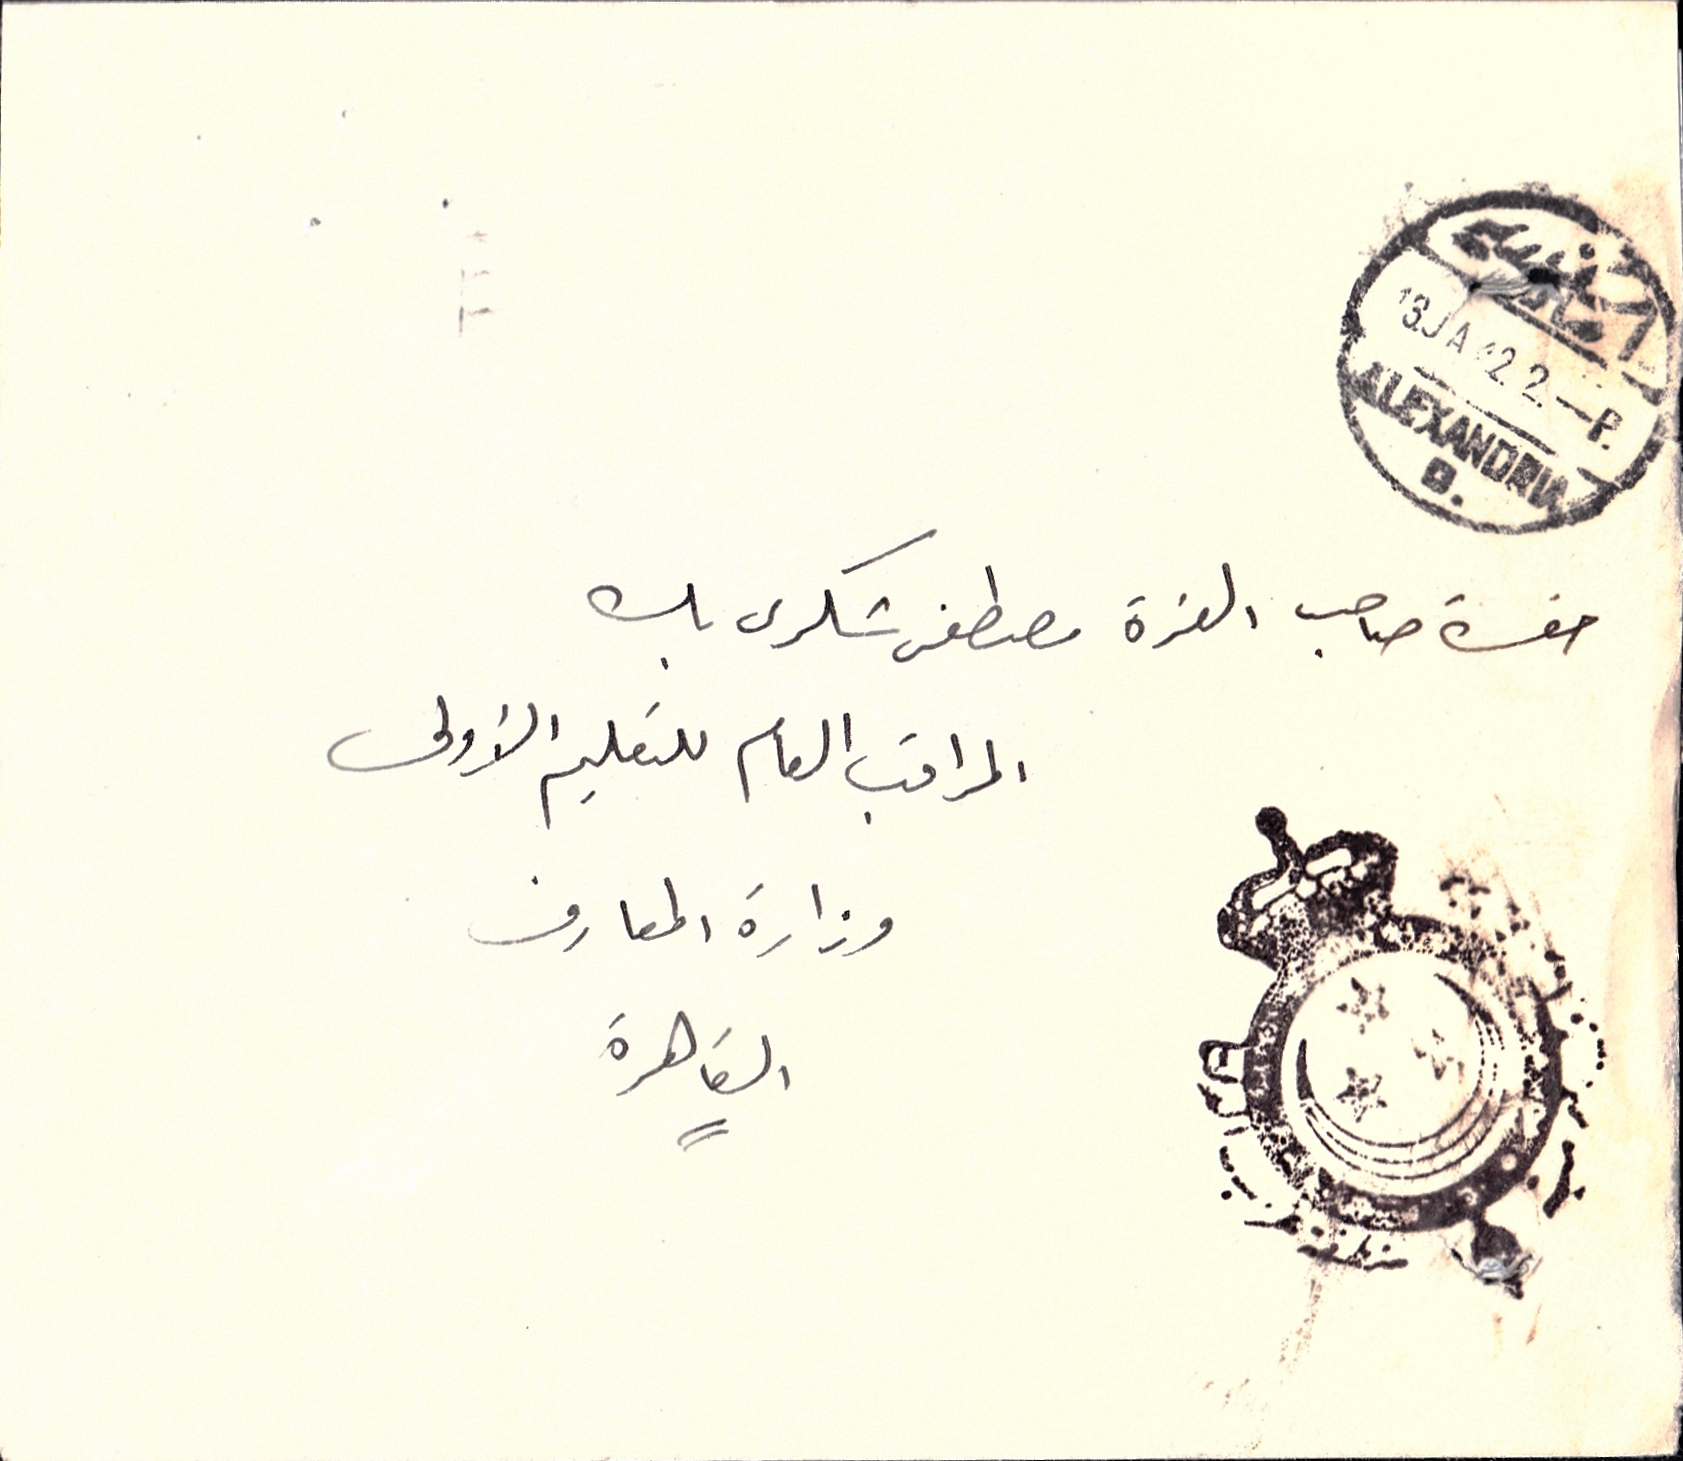 الاسكندرية
13 JA 42. 2 — P.
ALEXANDRIA
حضرة صاحب العزة مصطفى شكرى بك
المراقب العام للتعليم الأولى
وزارة المعارف
القاهرة